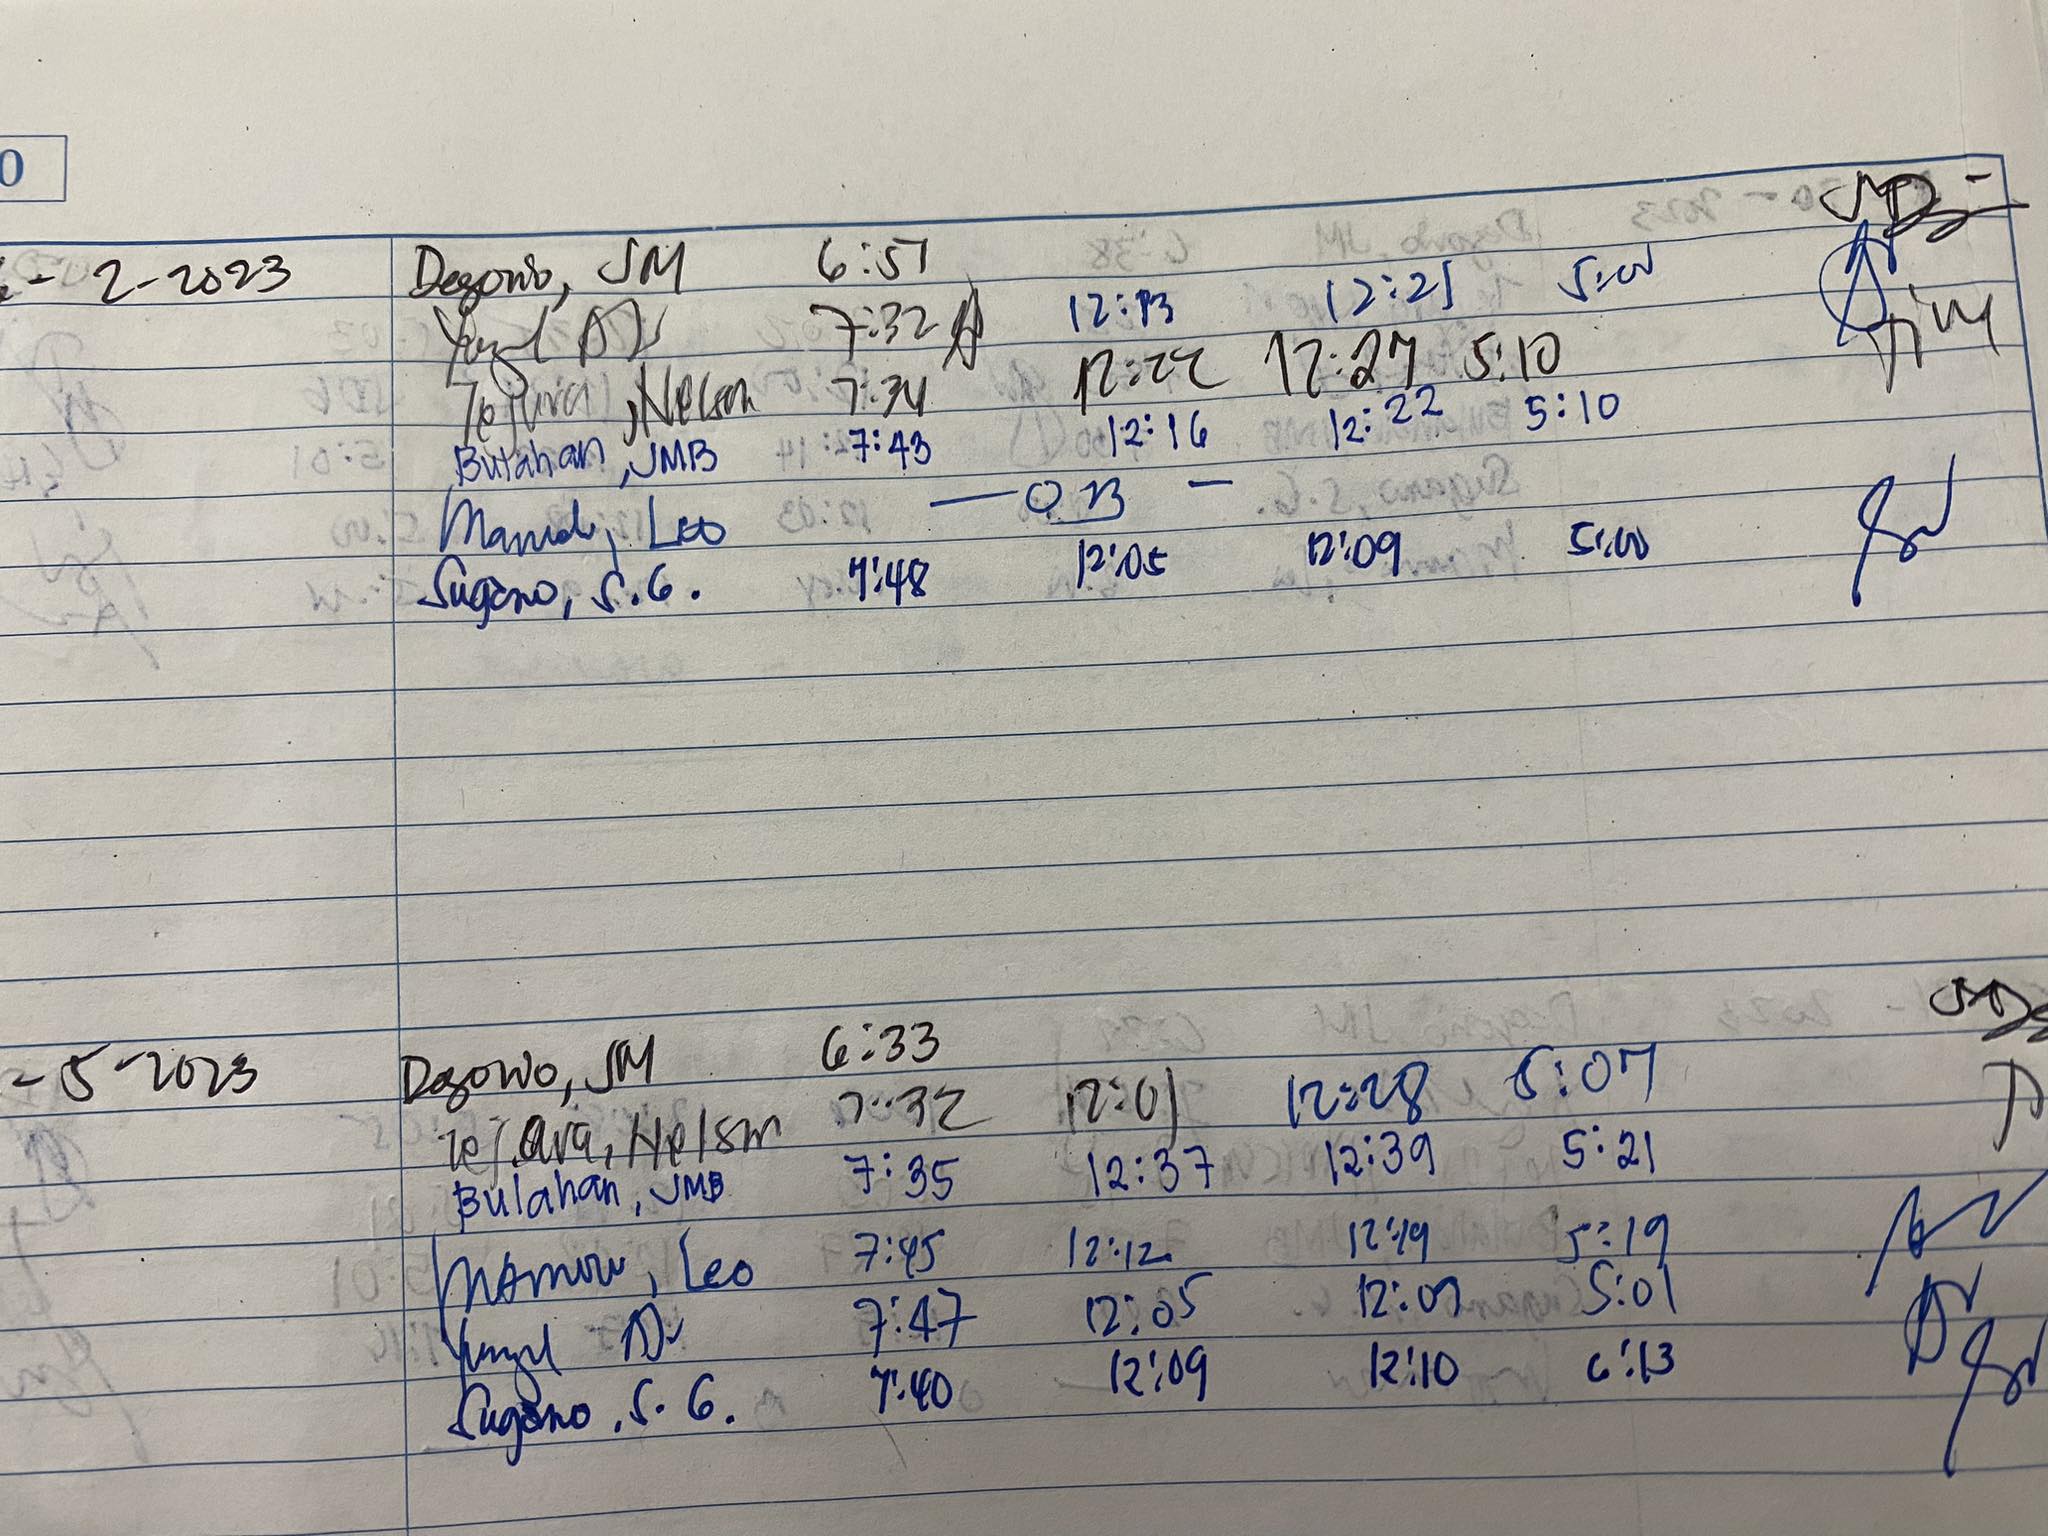 0
- 2-2023 Degorio, JM 6:57
7:32 12:13 12:25 5:00
Tejura, Nelson 7:34 12:22 12:27 5:10
Bulahan, JMB 7:43 12:16 12:22 5:10
Leo — OB —
Sugano, S.G. 7:48 12:05 12:09 5:00
- 5-2023 Degorio, JM 6:33
Tejara, Nelson 7:32 12:01 12:28 5:07
Bulahan, JMB 7:35 12:37 12:39 5:21
Leo 7:45 12:12 12:19 5:19
7:47 12:05 12:07 5:01
Sugano, S.G. 7:40 12:09 12:10 6:13